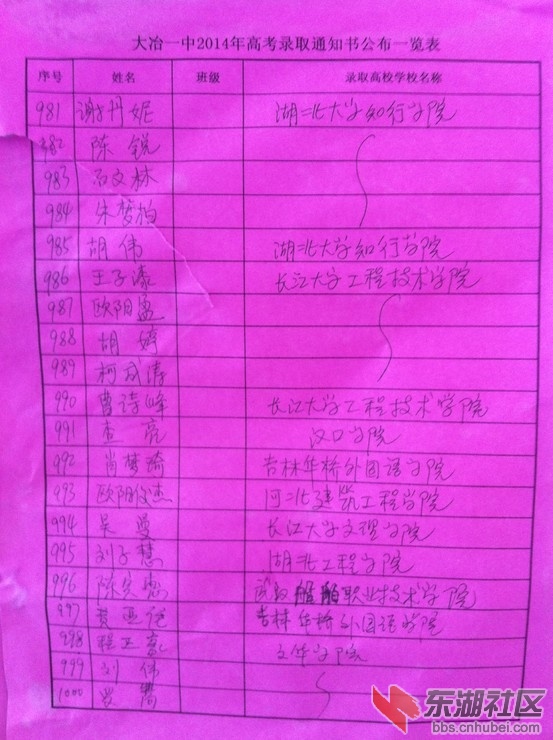 大冶一中2014年高考录取通知书公布一览表
序号 姓名 班级 录取高校学校名称
981 谢丹妮 湖北大学知行学院
982 陈锐
983 石文林
984 朱梦柏
985 胡伟 湖北大学知行学院
986 王子漆 长江大学工程技术学院
987 欧阳盈
988 胡婷
989 柯涛
990 曹诗峰 长江大学工程技术学院
991 查亮 汉口学院
992 肖梦琦 吉林华桥外国语学院
993 欧阳俊杰 河北建筑工程学院
994 吴曼 长江大学文理学院
995 刘子慧 湖北工程学院
996 陈 武汉船舶职业技术学院
997 黄亚 吉林华桥外国语学院
998 程正 文华学院
999 刘伟
1000
东湖社区
bbs.cnhubei.com